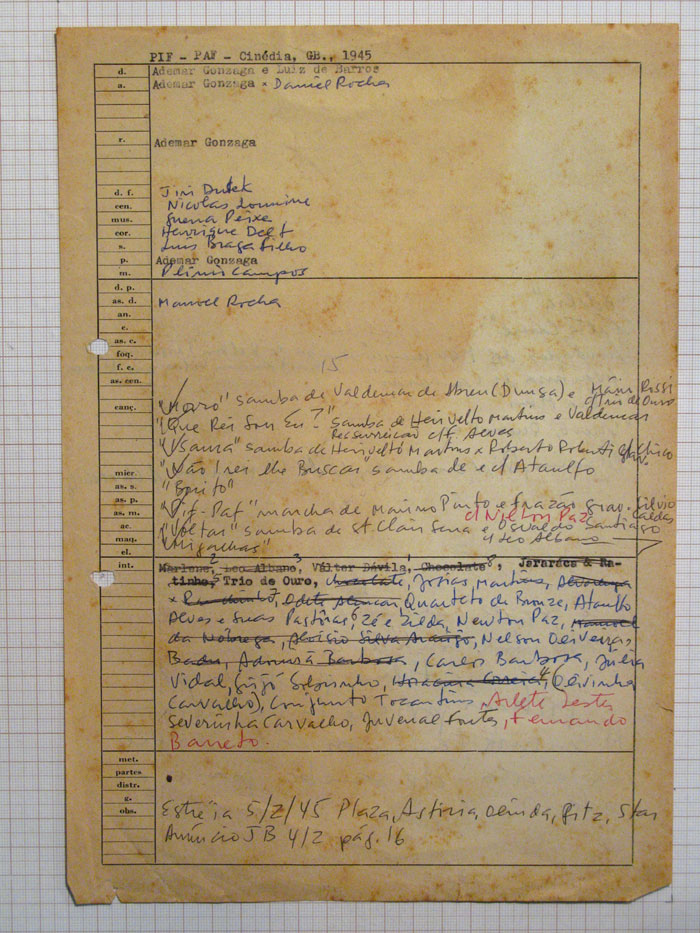 PIF - PAF - Cinédia, GB., 1945
d. Ademar Gonzaga e Luiz de Barros
a. Ademar Gonzaga x Daniel Rocha
r. Ademar Gonzaga
d. f. Jiri Dusek
cen. Nicolas
mus. Guerra Peixe
cor. Henrique Delf
s. Luis Braga Filho
p. Ademar Gonzaga
m. Plinio Campos
d. p.
as. d. Manoel Rocha
an.
c.
as. c.
foq.
f. c.
as. cen.
15
canç. samba de Valdemar de Abreu (Dunga) e Mário Rossi
c/ Trio de Ouro
"Que Rei Sou Eu?" samba de Herivelto Martins e Valdemar
Ressurreição c/ F. Alves
"Isaura" samba de Herivelto Martins x Roberto Roberti
micr. "Não Irei lhe Buscar" samba de e c/ Ataulfo
as. s.
as. p. "Pif-Paf" marcha de Marino Pinto e Frazão grav. Silvio
Caldas
c/ Nilton Paz
as. m.
ac. "Voltar" samba de St Clair Sena e Osvaldo Santiago
c/ Leo Albano
maq. "Migalhas"
el.
int. Marlene, Leo Albano, Válter Dávila, Chocolate, Jararáca & Ra-
tinho, Trio de Ouro, Chocolate, Josias Martins, Alvarenga
x Ranchinho, Odete Alencar, Quarteto de Bronze, Ataulfo
Alves e suas Pastoras, Zé e Zilda, Newton Paz, Manoel
da Nóbrega, Aloisio Silva Araujo, Nelson Oliveira,
Badu, Adonirã Barbosa, Carlos Barbosa, Júlia
Vidal, Horacina Correia, (Olivinha
Carvalho), Conjunto Tocantins, Arlete Lester
Severinha Carvalho, Juvenal Fontes, Fernando
Barreto.
met.
partes
distr.
g.
obs. Estréia 5/2/45 Plaza, Astória, Olinda, Ritz, Star
Anúncio JB 4/2 pág. 16